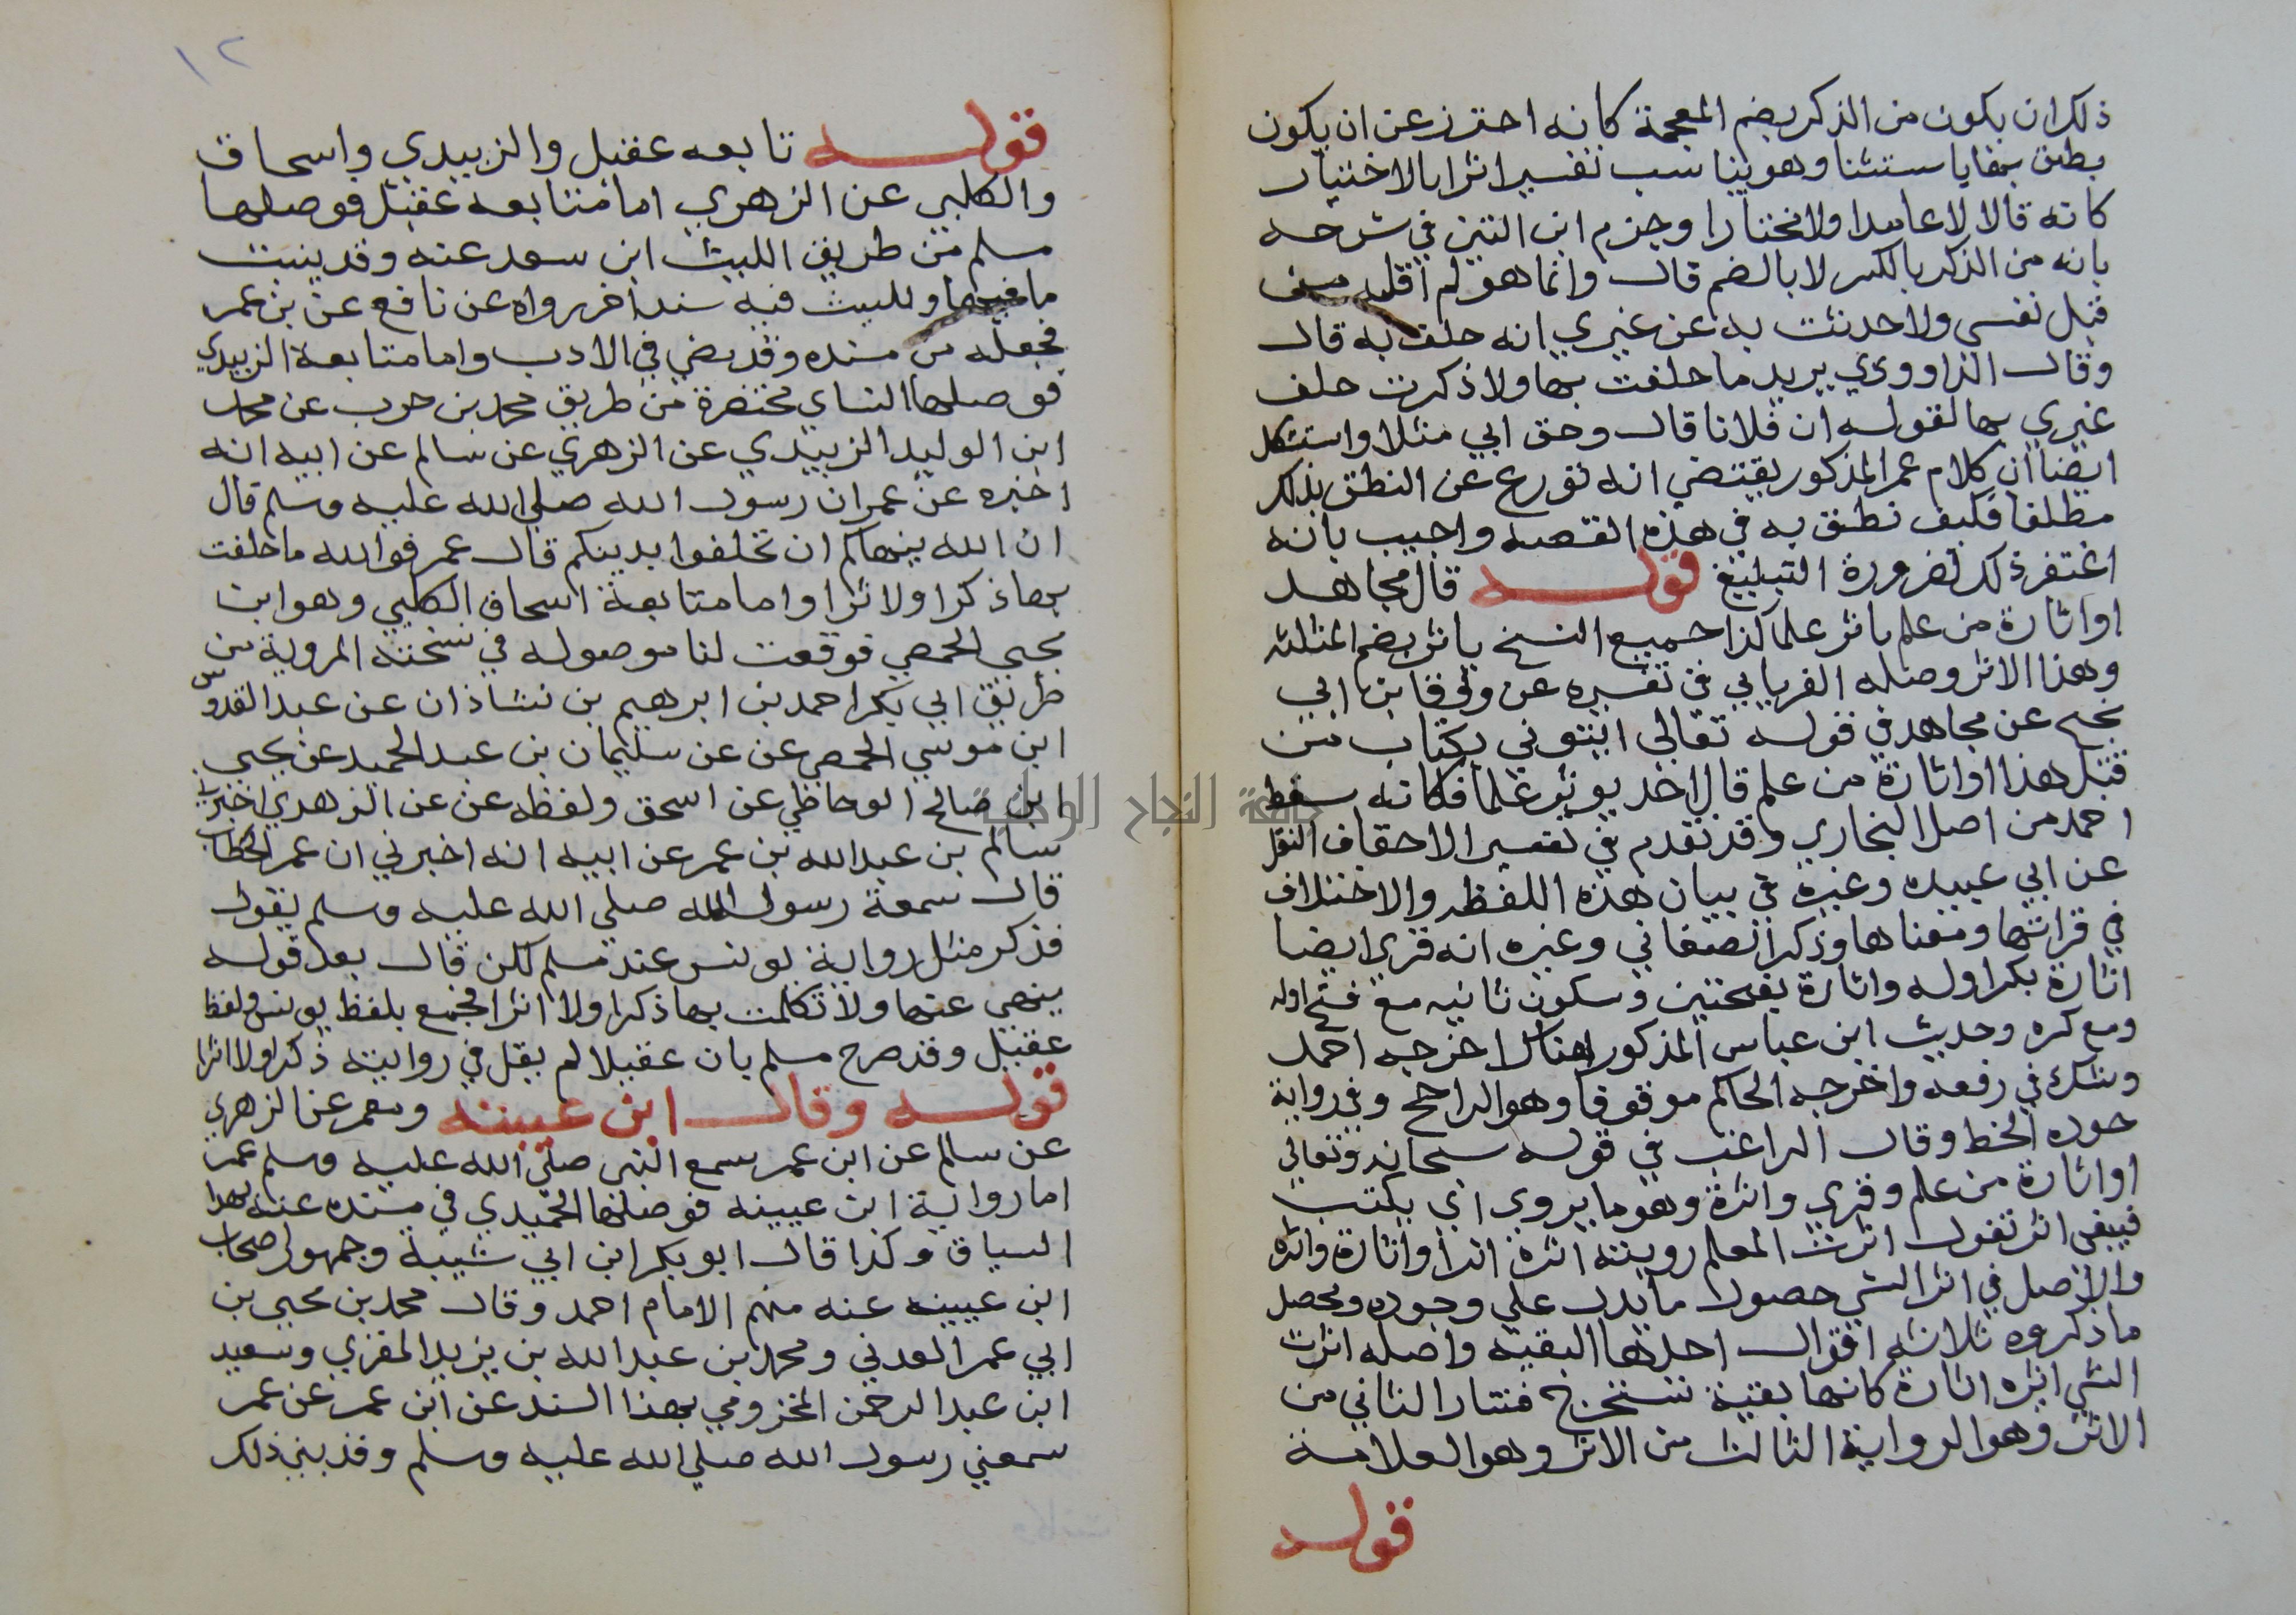 ذلك ان يكون من الذكر بضم المعجمة كانه احترز عن ان يكون
ينطق بمغايا ستثنا وهو يناسب تفسير اثرا بالاختيار
كانه قال لا عامدا ولا مختارا وجزم ابن التين في شرحه
بانه من الذكر بالكسر لا بالضم قال وانما هو لم اقله من
قبل نفسي ولا حدثت به عن غيري انه حلف به قال
وقال الداوودي يريد ما حلفت بها ولا ذكرت حلف
غيري بها لقوله ان فلانا قال وحق ابي مثلا واستشكل
ايضا ان كلام عمر المذكور يقتضي انه تورع عن النطق بذلك
مطلقا فكيف نطق به في هذه القصه واجيب بانه
اغتفر ذلك لضرورة التبليغ قوله قال مجاهد
او اثارة من علم ياثر علما كذا جميع النسخ ياثر بضم المثلثه
وهذا الاثر وصله الفريابي في تفسيره عن ورقا بن ابي
نجيح عن مجاهد في قوله تعالي ايتوني بكتاب من
قبل هذا او اثارة من علم قال احد يوثر علما فكانه سقط
احد من اصل البخاري وقد تقدم في تفسير الاحقاف النقل
عن ابي عبيده وغيره في بيان هذه اللفظه والاختلاف
في قراتها ومعناها وذكر الصغاني وغيره انه قري ايضا
اثارة بكسر اوله واثارة بفتحتين وسكون ثانيه مع فتح اوله
ومع كسره وحديث ابن عباس المذكور هناك اخرجه احمد
وشك في رفعه واخرجه الحاكم موقوفا وهو الراجح وفي رواية
جوده الخط وقال الراغب في قوله سبحانه وتعالي
او اثارة من علم وقري واثرة وهو ما يروي اي يكتب
فيبقي اثر تقول اثرت العلم رويته اثره اثرا واثارة واثره
والاصل في اثر الشي حصول ما يدل علي وجوده ومحصل
ما ذكروه ثلاثه اقوال احدها البقيه واصله اثرت
الشي اثره اثارة كانها بقية تستخرج فتثار الثاني من
الاثر وهو الرواية الثالث من الاثر وهو العلامة
قوله
١٢
قوله تابعه عقيل والزبيدي واسحاق
والكلبي عن الزهري اما متابعه عقيل فوصلها
مسلم من طريق الليث ابن سعد عنه وقد بينت
ما فيها ولليث فيه سند اخر رواه عن نافع عن بن عمر
فجعله من مسنده وقد مضي في الادب واما متابعة الزبيدي
فوصلها النساي مختصرة من طريق محمد بن حرب عن محمد
ابن الوليد الزبيدي عن الزهري عن سالم عن ابيه انه
اخبره عن عمر ان رسول الله صلي الله عليه وسلم قال
ان الله ينهاكم ان تحلفوا بدينكم قال عمر فوالله ما حلفت
بها ذكرا ولا اثرا واما متابعة اسحاق الكلبي وهو ابن
يحيي الحمصي فوقعت لنا موصوله في نسخته المروية من
طريق ابي بكر احمد بن ابرهيم بن شاذان عن عبد القدوس
ابن موسي الحمصي عن عن سليمان بن عبد الحميد عن يحيي
ابن صالح الوحاظي عن اسحق ولفظه عن عن الزهدي اخبرنا
سالم بن عبد الله بن عمر عن ابيه انه اخبرني ان عمر الخطاب
قال سمعة رسول الله صلي الله عليه وسلم يقول
فذكر مثل رواية يونس عند مسلم لكن قال بعد قوله
ينهي عنها ولا تكلمت بها ذكرا ولا اثرا فجمع بلفظ يونس ولفظ
عقيل وقد صرح مسلم بان عقيلا لم يقل في روايته ذكرا ولا اثرا
قوله وقال ابن عيينه ومعمر عن الزهري
عن سالم عن ابن عمر سمع النبي صلي الله عليه وسلم عمر
اما رواية ابن عيينه فوصلها الحميدي في مسنده عنه بهذا
السياق وكذا قال ابو بكر ابن ابي شيبة وجمهور اصحاب
ابن عيينه عنه منهم الامام احمد وقال محمد بن يحيي بن
ابي عمر العدني ومحمد بن عبد الله بن يزيد المقري وسعيد
ابن عبد الرحمن المخزومي بهذا السند عن ابن عمر عن عمر
سمعني رسول الله صلي الله عليه وسلم وقد بين ذلك
جامعة النجاح الوطنية